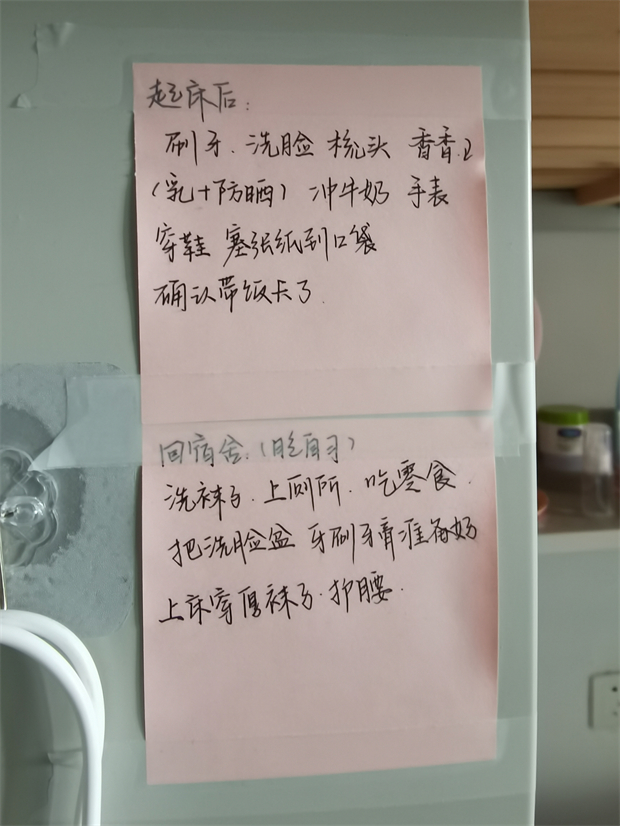 起床后：
刷牙、洗脸 梳头 香香.
（乳+防晒） 冲牛奶 手表
穿鞋 塞张纸到口袋
确认带饭卡了.
回宿舍.（晚自习）
洗袜子.上厕所.吃零食.
把洗脸盆 牙刷牙膏准备好
上床穿厚袜子.护腰.